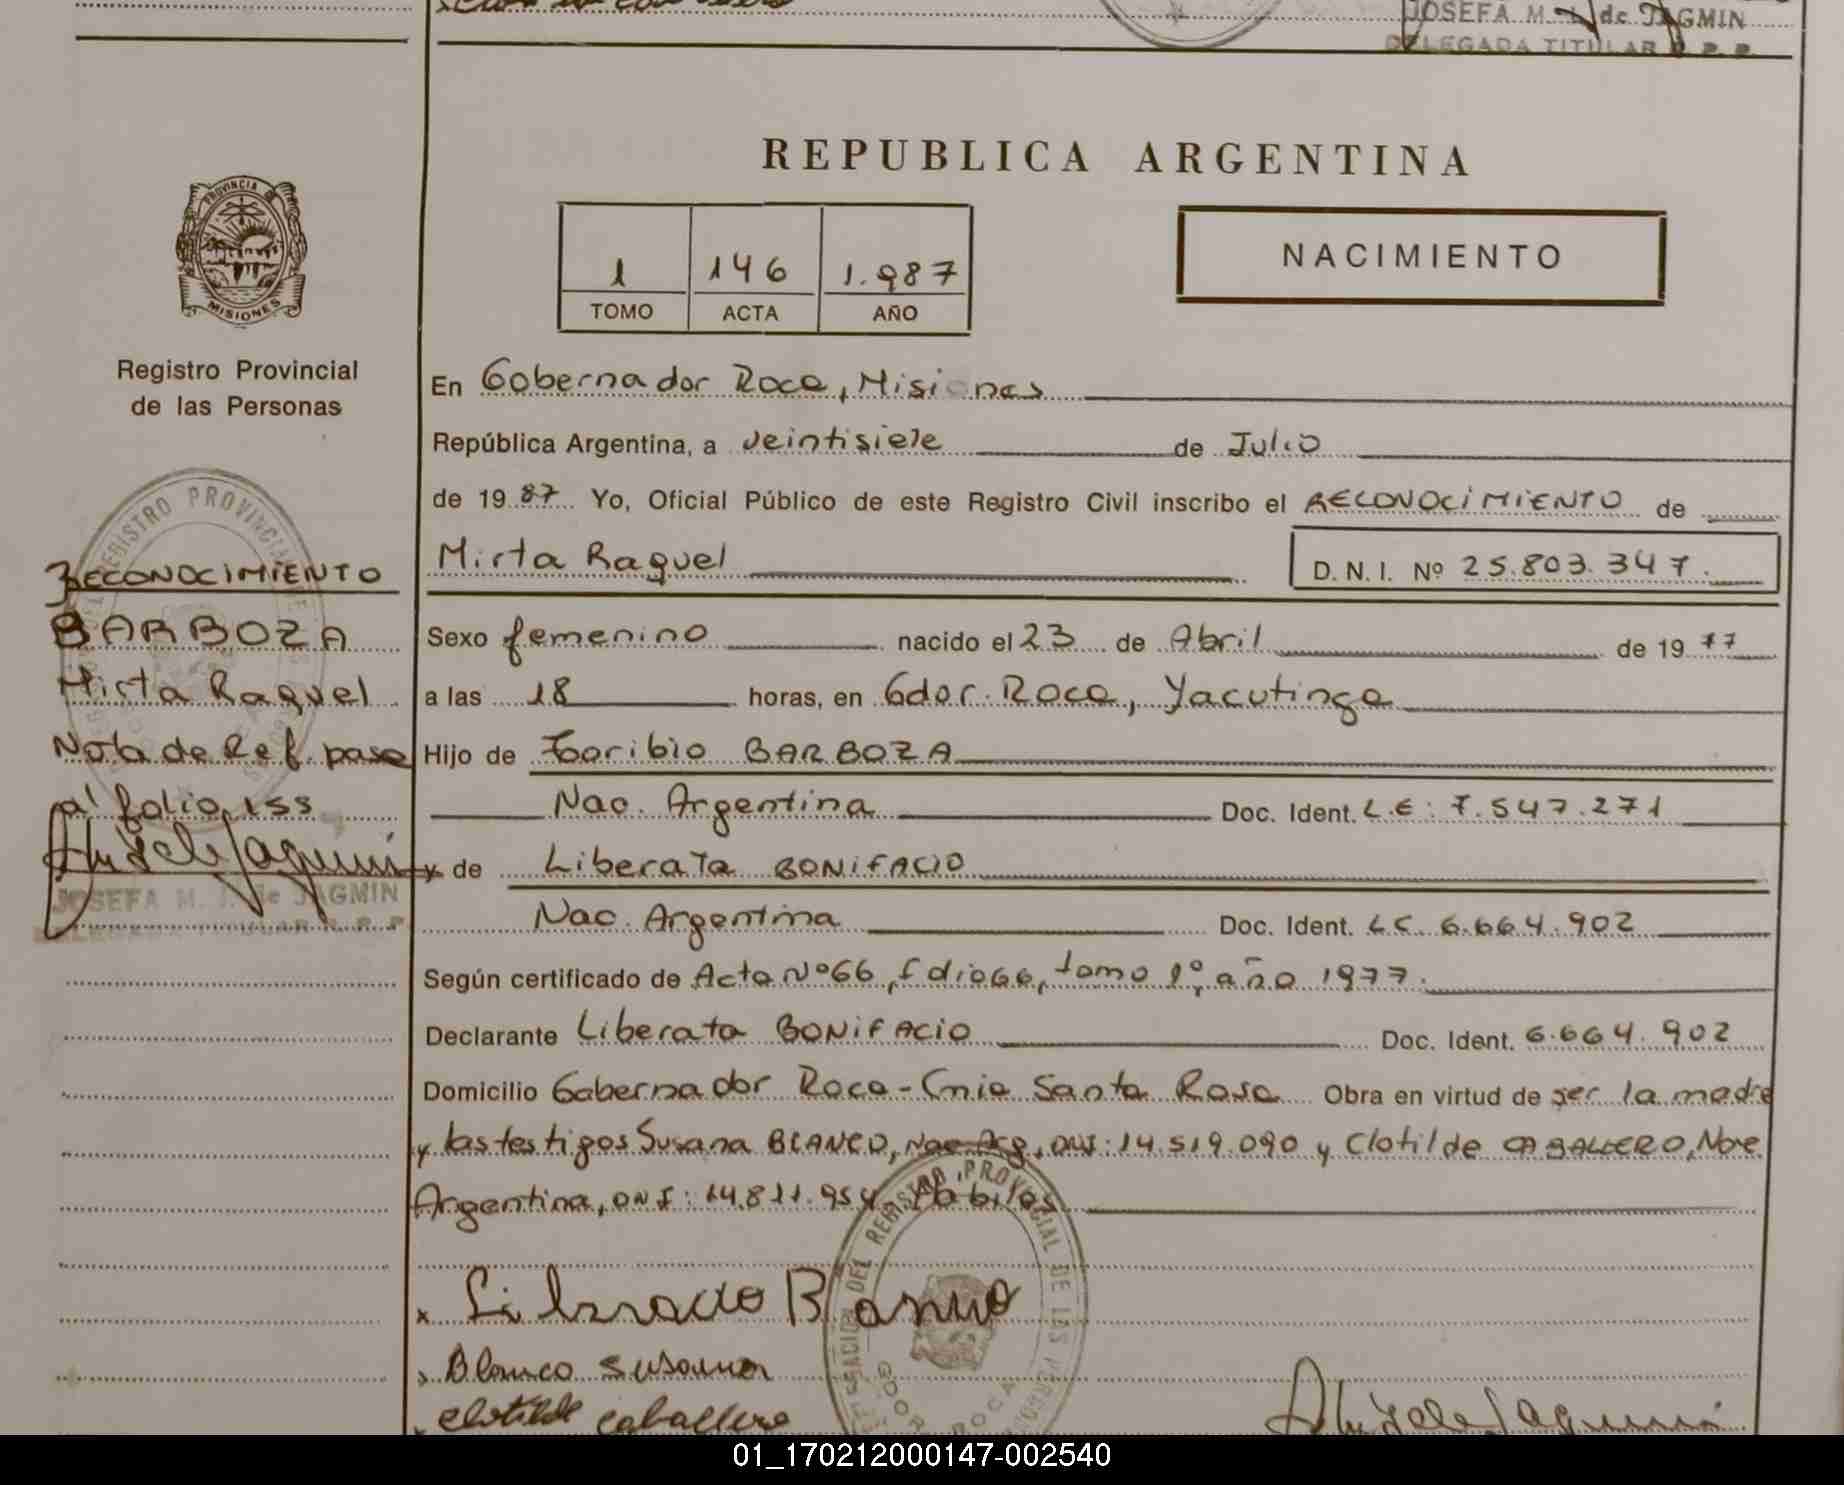 JOSEFA M. I. de JAGMIN
DELEGADA TITULAR R. P. P.
REPUBLICA ARGENTINA
PROVINCIA DE
MISIONES
1 146 1.987
TOMO ACTA AÑO
NACIMIENTO
Registro Provincial
de las Personas
En Gobernador Roca, Misiones
República Argentina, a veintisiete de Julio
de 1987 Yo, Oficial Público de este Registro Civil inscribo el RECONOCIMIENTO de
Mirta Raquel D. N. I. Nº 25.803.347.
RECONOCIMIENTO
BARBOZA
Mirta Raquel
Nota de Ref. pasa
al folio 155
JOSEFA M. I. de JAGMIN
DELEGADA TITULAR R. P. P.
Sexo femenino nacido el 23 de Abril de 1977
a las 18 horas, en Gdor. Roca, Yacutinga
Hijo de Toribio BARBOZA
Nac. Argentina Doc. Ident. L.E: 7.547.271
y de Liberata BONIFACIO
Nac. Argentina Doc. Ident. LC. 6.664.902
Según certificado de Acta Nº66, folio66, tomo 1º, año 1977.
Declarante Liberata BONIFACIO Doc. Ident. 6.664.902
Domicilio Gobernador Roca-Cnia Santa Rosa Obra en virtud de ser la madre
y las testigos Susana BLANCO, Nac Arg, DNI: 14.519.090 y Clotilde CABALLERO, Nac
Argentina, DNI: 14.811.954. Hábiles
Blanco Susana
Clotilde Caballero
DEL REGISTRO PROVINCIAL DE LAS PERSONAS
GDOR. ROCA
01_170212000147-002540